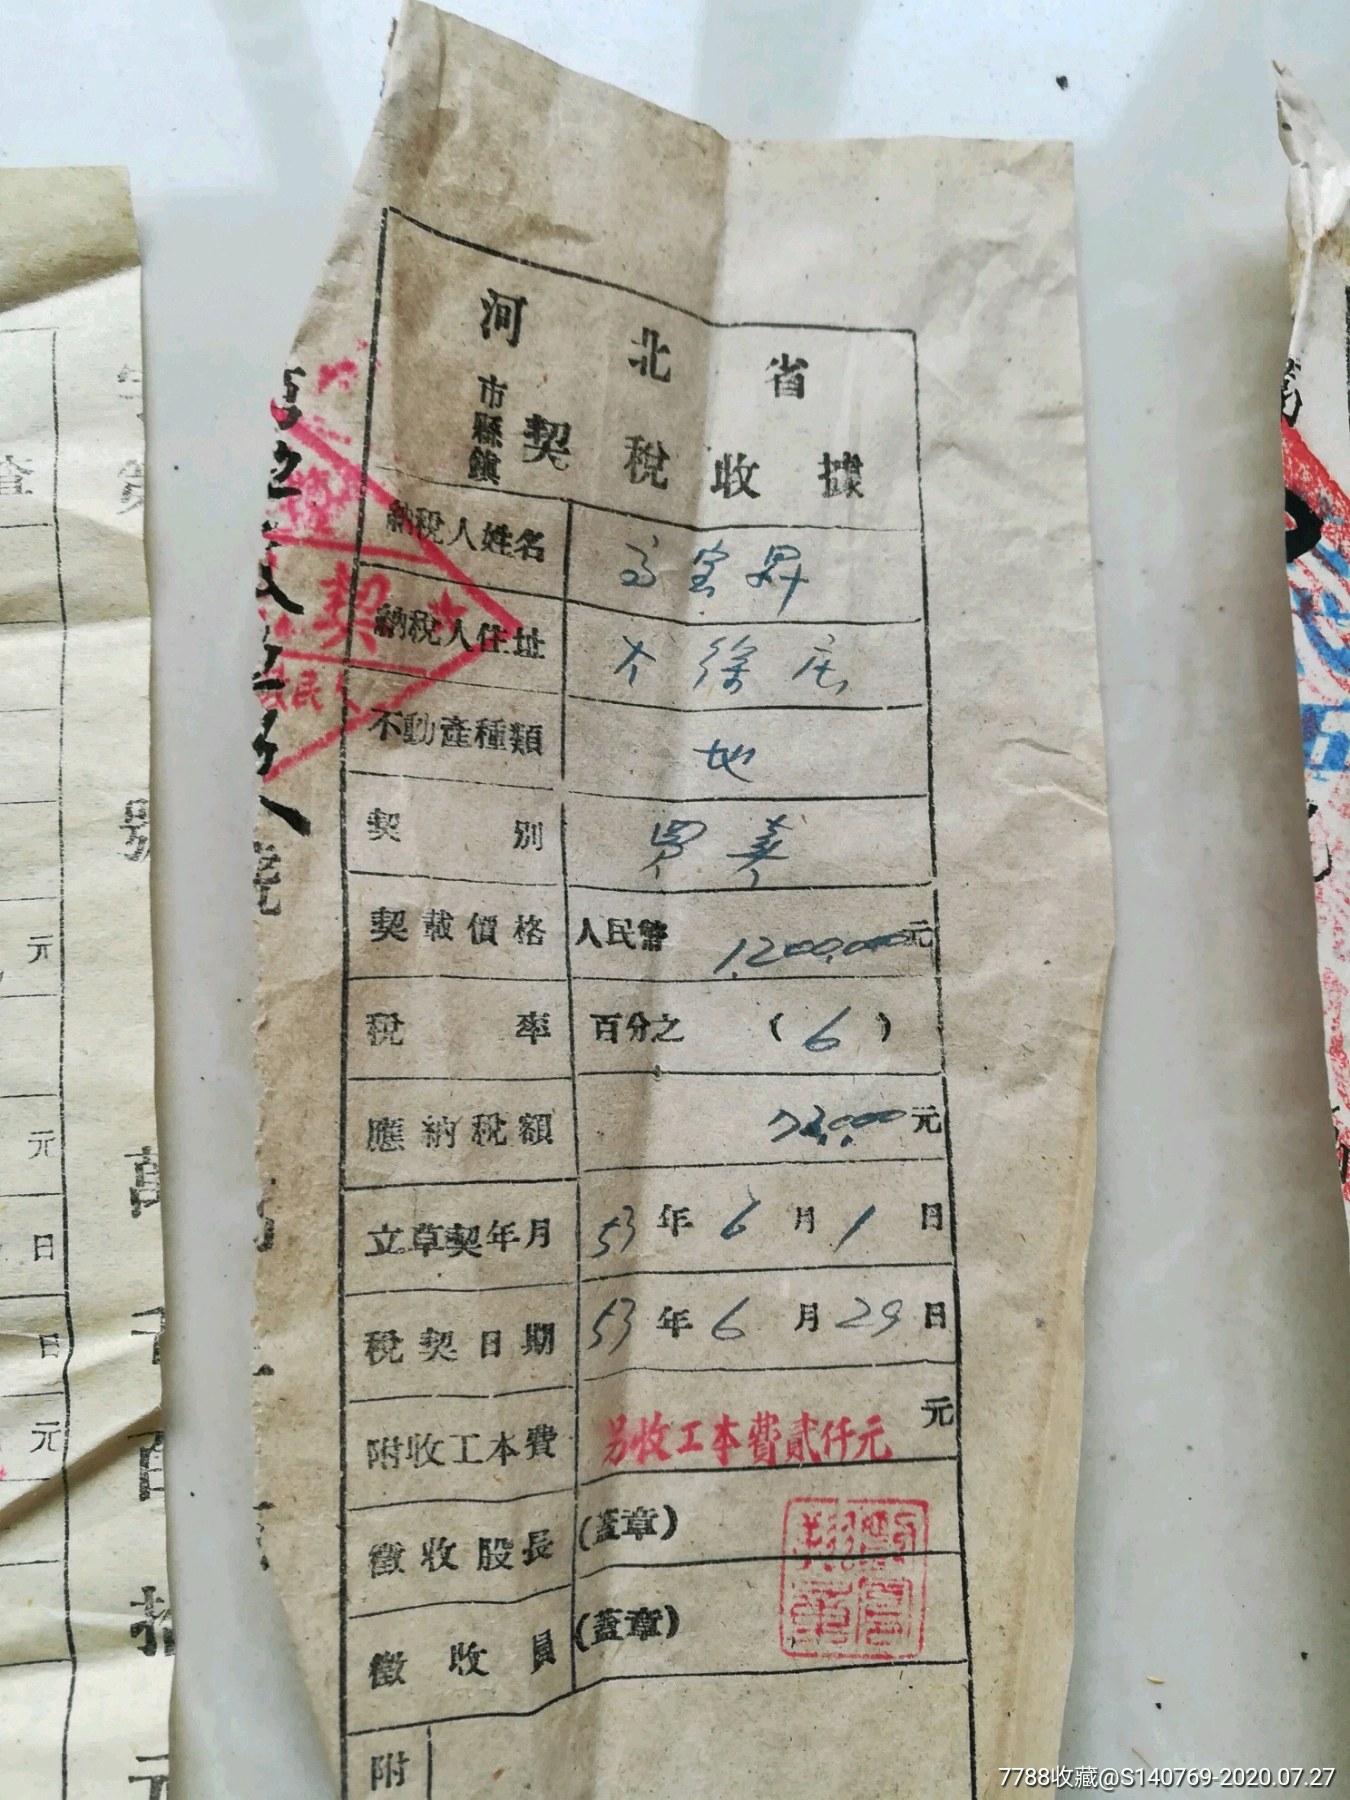 河北省
市縣鎮
契稅收據
納稅人姓名 高宝昇
納稅人住址 大徐庄
不動產種類 地
契別 買卖
契載價格 人民幣 1,200,000元
稅率 百分之 (6)
應納稅額 72,000元
立草契年月 53年6月1日
稅契日期 53年6月29日
附收工本費 另收工本費貳仟元 元
徵收股長 (蓋章)
徵收員 (蓋章)
附
契
元
元
日
日
元
7788收藏@S140769-2020.07.27